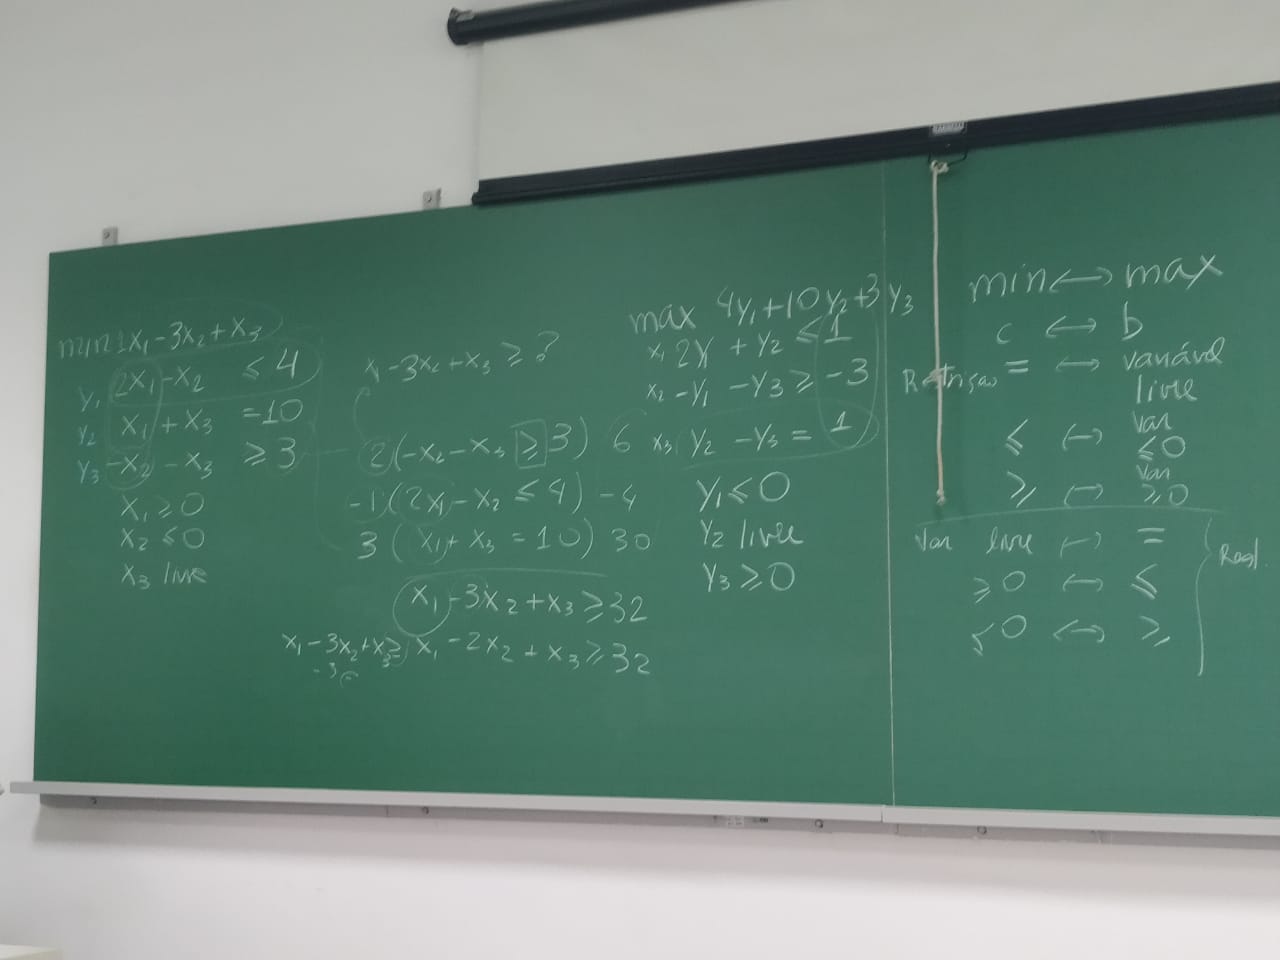 min 1x₁ - 3x₂ + x₃
y₁ 2x₁ - x₂ ≤ 4
y₂ x₁ + x₃ = 10
y₃ -x₂ - x₃ ≥ 3
x₁ ≥ 0
x₂ ≤ 0
x₃ livre
x₁ - 3x₂ + x₃ ≥ ?
2(-x₂ - x₃ ≥ 3) 6
-1(2x₁ - x₂ ≤ 4) -4
3(x₁ + x₃ = 10) 30
x₁ - 3x₂ + x₃ ≥ 32
x₁ - 3x₂ + x₃ ≥ x₁ - 2x₂ + x₃ ≥ 32
max 4y₁ + 10y₂ + 3y₃
x₁ 2y + y₂ ≤ 1
x₂ -y₁ - y₃ ≥ -3
x₃ y₂ - y₃ = 1
y₁ ≤ 0
y₂ livre
y₃ ≥ 0
min ↔ max
c ↔ b
= ↔ variável
livre
≤ ↔ var
≤0
≥ ↔ var
≥0
Var livre ↔ =
≥0 ↔ ≤
≤0 ↔ ≥